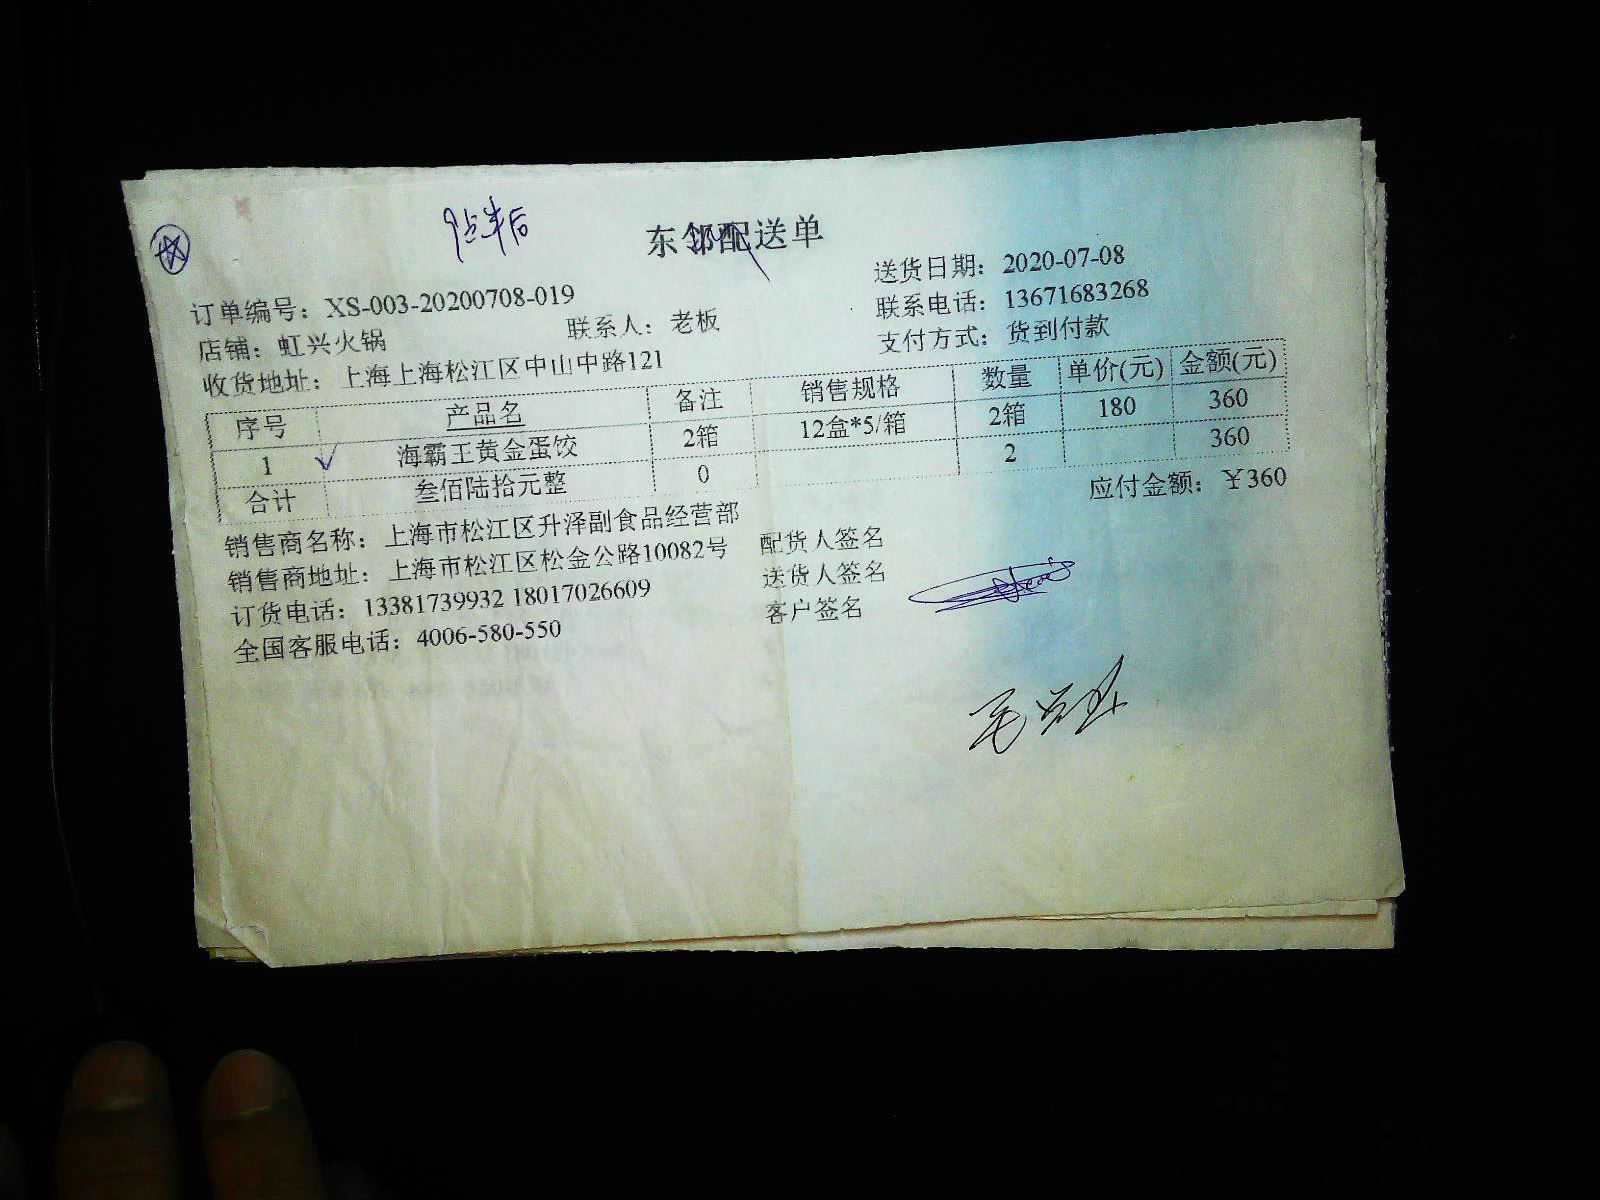 9点半后
东邻配送单
送货日期：2020-07-08
订单编号：XS-003-20200708-019
联系电话：13671683268
店铺：虹兴火锅 联系人：老板
支付方式：货到付款
收货地址：上海上海松江区中山中路121
序号 产品名 备注 销售规格 数量 单价(元) 金额(元)
1 海霸王黄金蛋饺 2箱 12盒*5/箱 2箱 180 360
合计 叁佰陆拾元整 0 2 360
应付金额：￥360
销售商名称：上海市松江区升泽副食品经营部
配货人签名
销售商地址：上海市松江区松金公路10082号
送货人签名
订货电话：13381739932 18017026609
客户签名
全国客服电话：4006-580-550